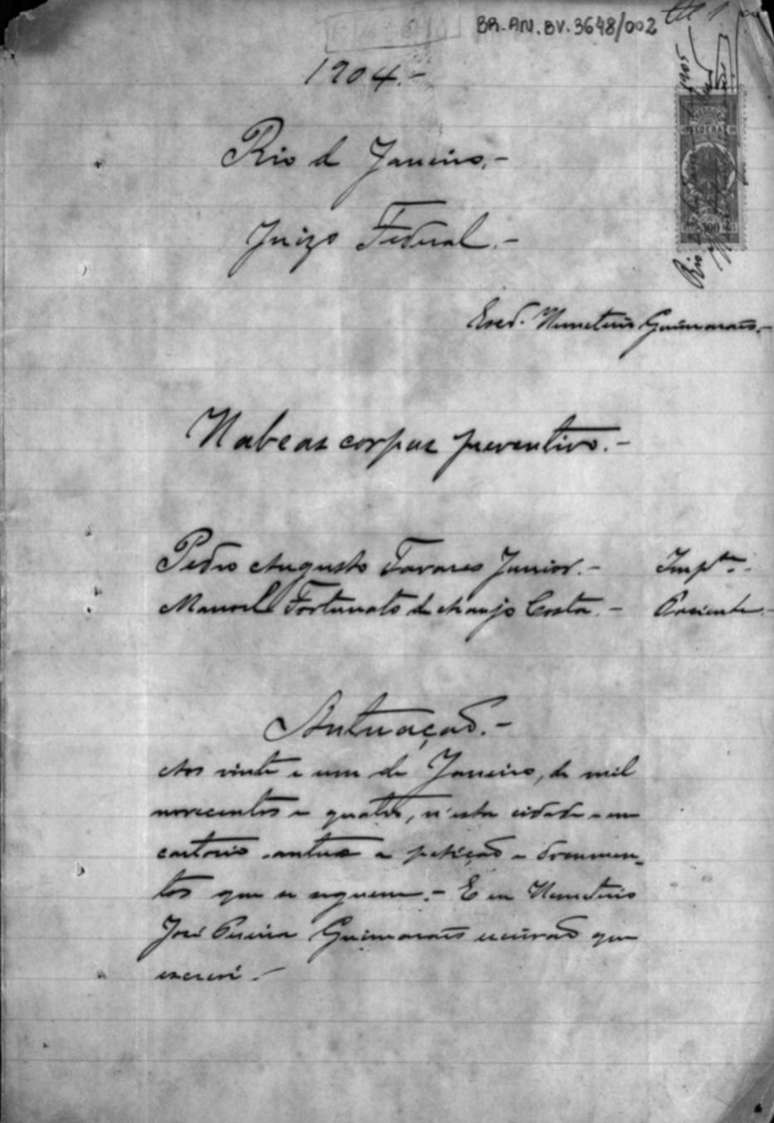 BR.AN.BV.3648/002
1904.-
Rio d Janeiro.-
Juizo Federal.-
Escr. Nemeterio Guimarães.-
Habeas corpus preventivo.-
Pedro Augusto Tavares Junior.- Impte.-
Manoel Fortunato de Araujo Costa.- Paciente.-
Autuação.-
Aos vinte e um de Janeiro, de mil
novecentos e quatro, n'esta cidade e em
cartorio autuo a petição e documen-
tos que se seguem.- E eu Nemeterio
José Pereira Guimarães escrivão que
escrevi.-